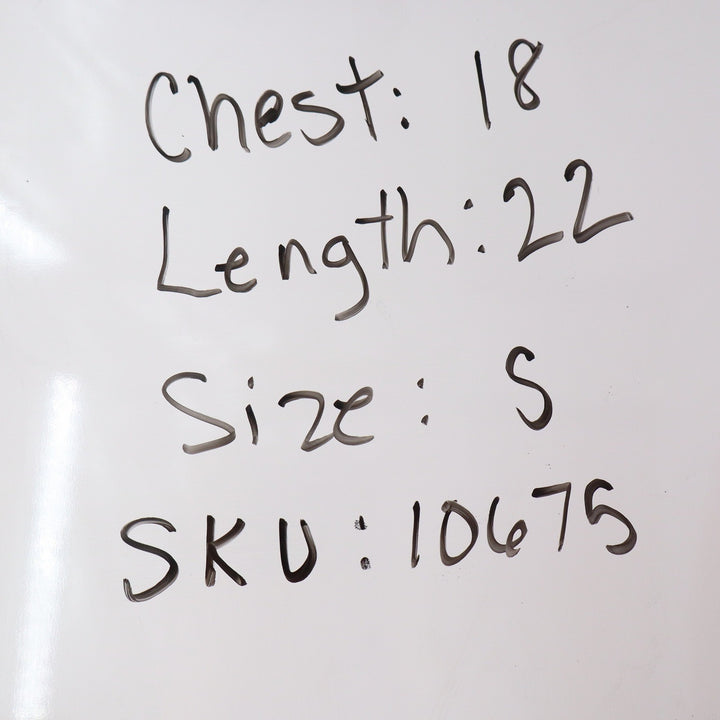 Chest: 18
Length: 22
Size: S
SKU: 10675